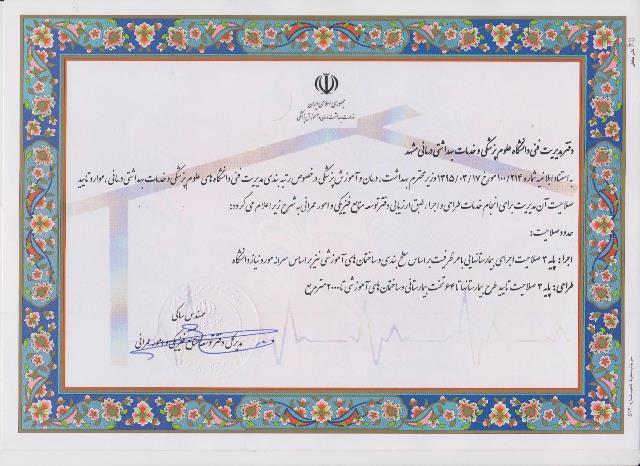 جمهوری اسلامی ایران
وزارت بهداشت، درمان و آموزش پزشکی
دفتر مدیریت فنی دانشگاه علوم پزشکی و خدمات بهداشتی درمانی مشهد
به استناد ابلاغیه شماره ۱۰۰/۲۱۴ مورخ ۱۳۹۵/۰۳/۱۷ وزیر محترم بهداشت، درمان و آموزش پزشکی در خصوص رتبه بندی مدیریت فنی دانشگاه های علوم پزشکی و خدمات بهداشتی درمانی، موارد تایید
صلاحیت آن مدیریت برای انجام خدمات طراحی و اجرا، طبق ارزیابی دفتر توسعه منابع فیزیکی و امور عمرانی به شرح زیر اعلام می گردد:
حدود صلاحیت:
اجرا: پایه ۳ صلاحیت اجرای بیمارستانهایی با هر ظرفیت بر اساس سطح بندی و ساختمان های آموزشی نیز بر اساس سرانه مورد نیاز دانشگاه
طراحی: پایه ۳ صلاحیت تایید طرح بیمارستانها تا ۶۴ تخت بیمارستانی و ساختمان های آموزشی تا ۲۰۰۰ مترمربع
مهندس
مدیرکل دفتر توسعه منابع فیزیکی و امور عمرانی